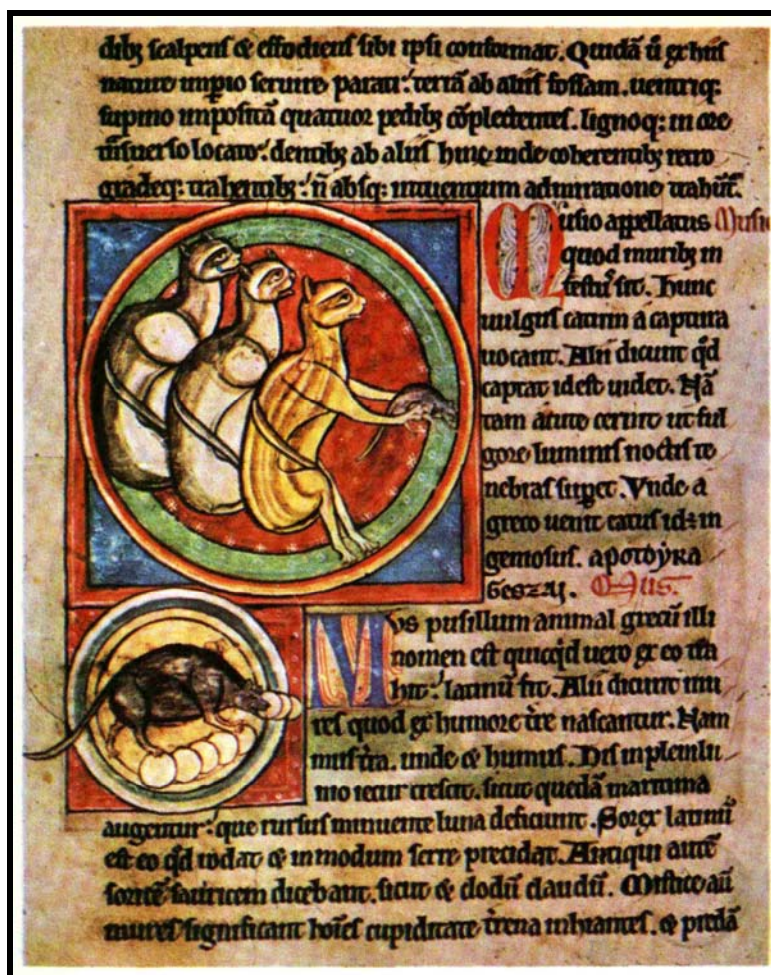 dib⁊ scalpens & effodiens sibi ipsi conformat. Quidā ū ex his
nature imp̱io seruire parati: terrā ab aliis fossam. uentriq:
supino impositā quatuor pedib⁊ cōplectentes. lignoq: in ore
tͣnsuerso locato: dentib⁊ ab aliis hinc inde coherentib⁊ retro
gradeq: trahentib⁊: ñ absq: intuentium admiratione trahūt̃.
Musio appellatus Musio
quod murib⁊ in
festuſ sit. Hunc
uulgus catum a captura
uocant. Alii dicunt qđ
captat id est uidet. Nā
tam acute cernit ut ful
gore luminis noctis te
nebras sup̱et. Vnde a
greco uenit catus id÷ in
geniosus. αποτοyκα
ϐεσzαι. Mus.
Mvs pusillum animal grecū illi
nomen est quicq̇d uero ex eo tra
hit᷑: latinū fit. Alii dicunt mu
res quod ex humore t̃re nascantur. Nam
mus t̃ra. unde & humus. His in plenilu
nio iecur crescit. sicut quedā maritima
augentur: que rursus minuente luna deficiunt. Sorex latinū
est eo qđ rodat & in modum serre precidat. Antiqui autē
soricē sauricem dicebant. sicut & clodū claudū. Mistice aū
mures significant hoı̄es cupiditate t̃rena inhiantes. & predā